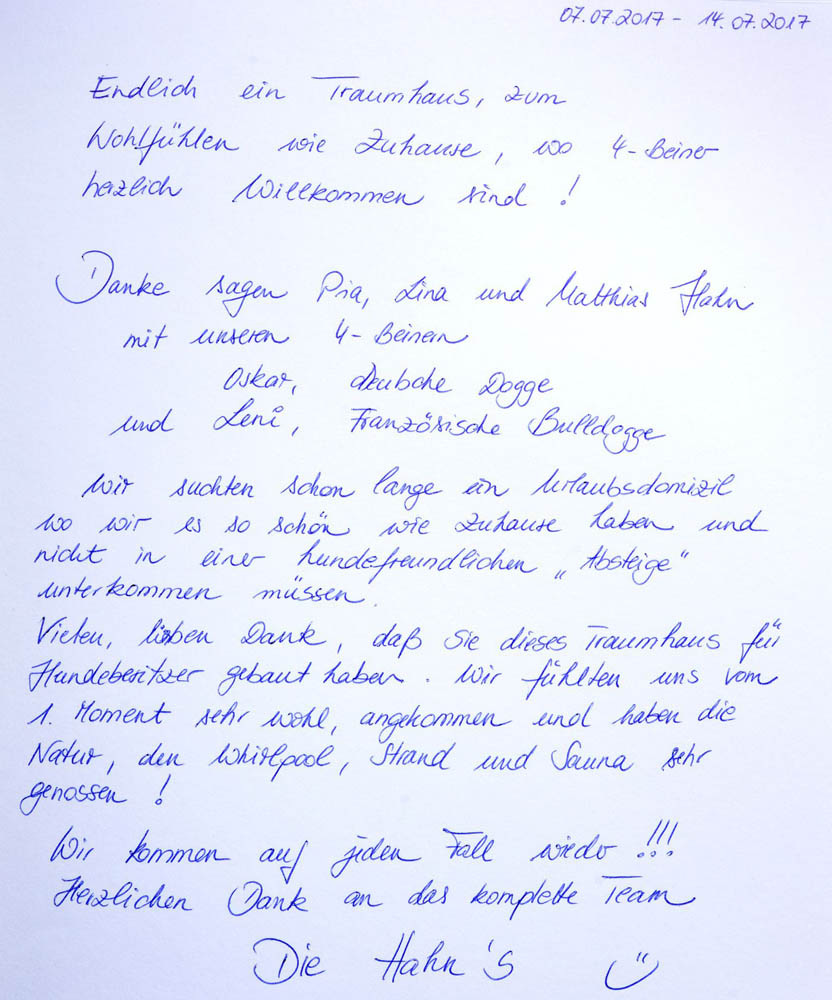 07.07.2017 - 14.07.2017
Endlich ein Traumhaus, zum
Wohlfühlen wie Zuhause, wo 4-Beiner
herzlich Willkommen sind !
Danke sagen Pia, Lina und Matthias Hahn
mit unseren 4-Beinern
Oskar, deutsche Dogge
und Leni, Französische Bulldogge
Wir suchten schon lange ein Urlaubsdomizil
wo wir es so schön wie Zuhause haben und
nicht in einer hundefreundlichen „Absteige"
unterkommen müssen.
Vielen, lieben Dank, daß Sie dieses Traumhaus für
Hundebesitzer gebaut haben. Wir fühlten uns vom
1. Moment sehr wohl, angekommen und haben die
Natur, den Whirlpool, Strand und Sauna sehr
genossen !
Wir kommen auf jeden Fall wieder !!!
Herzlichen Dank an das komplette Team
Die Hahn's